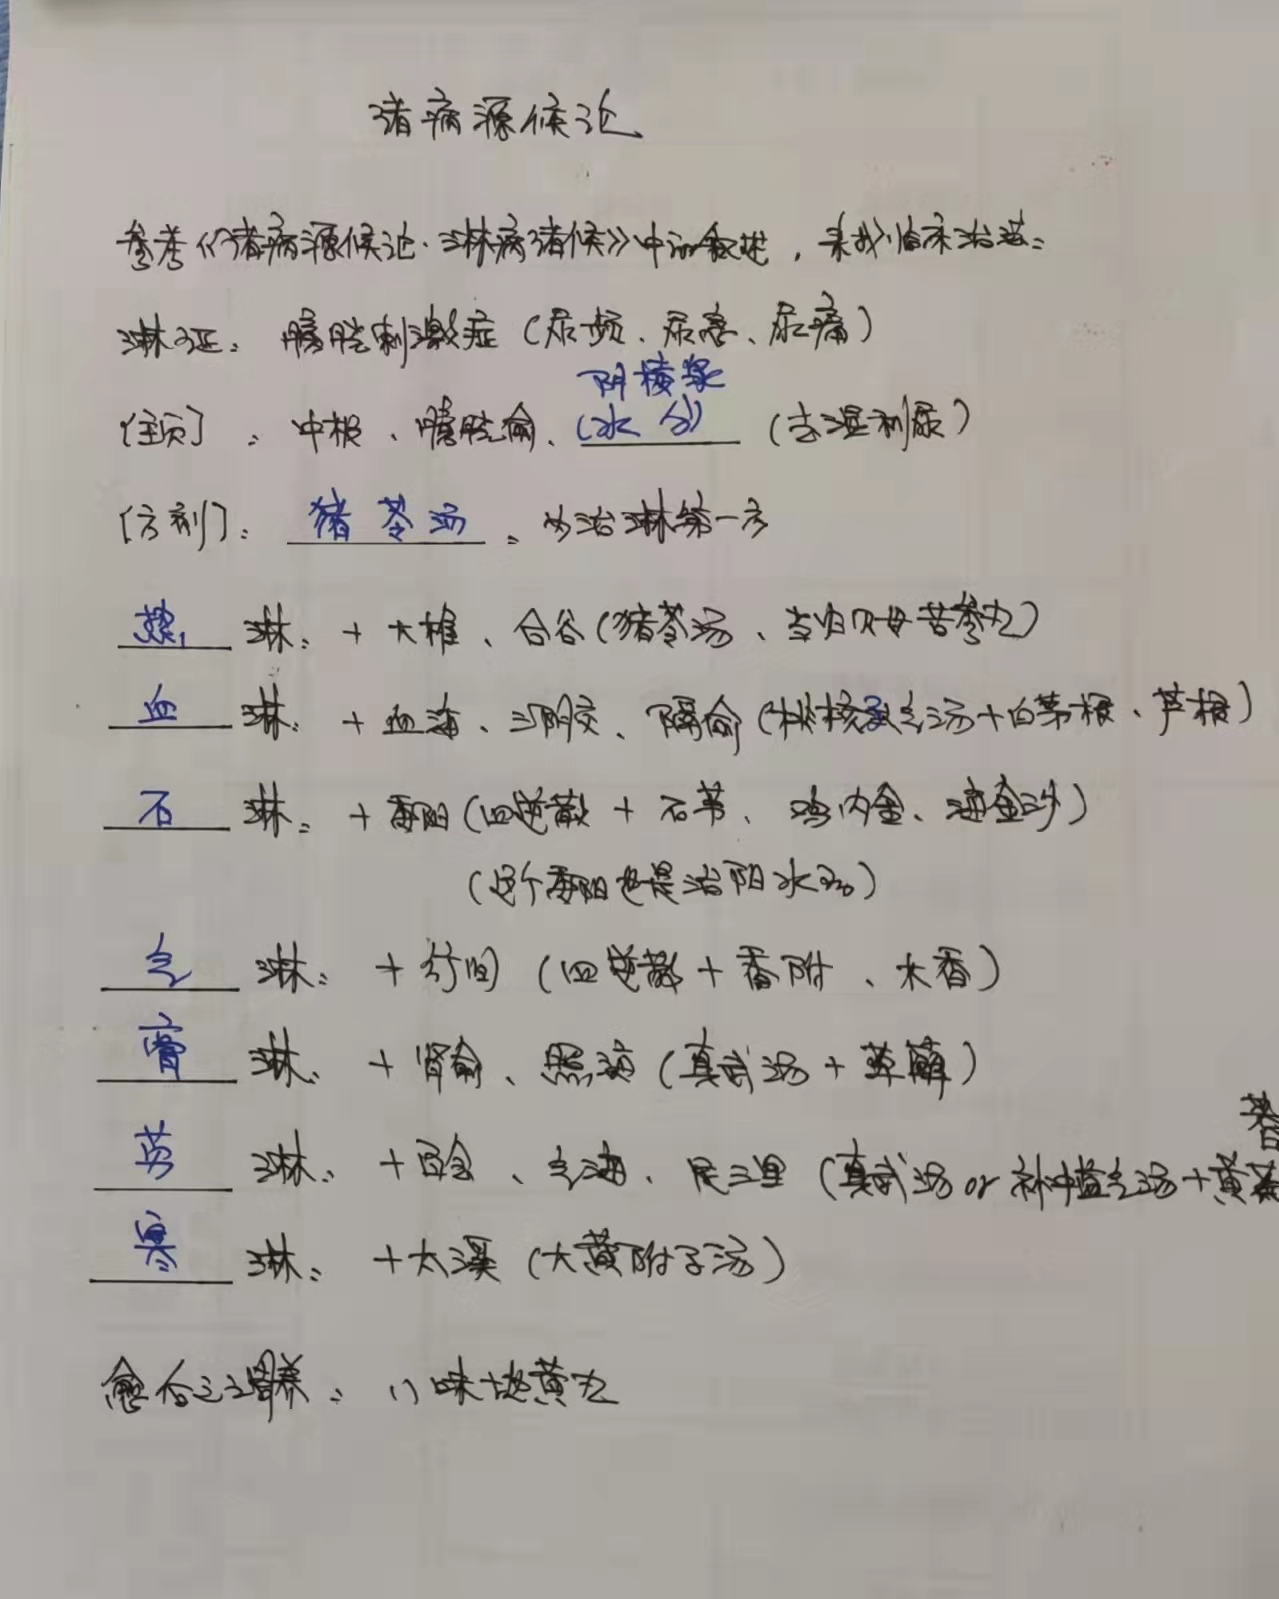 诸病源候论
参考《诸病源候论·淋病诸候》中的叙述，来找临床治法：
淋证：膀胱刺激症（尿频、尿急、尿痛）
阴棱泉
〔主穴〕：中极、膀胱俞、(水分)（去湿利尿）
〔方剂〕：猪苓汤。为治淋第一方
热淋：+大椎、合谷（猪苓汤、当归贝母苦参丸）
血淋：+血海、三阴交、隔俞（桃核承气汤+白茅根、芦根）
石淋：+委阳（四逆散+石苇、鸡内金、海金沙）
（这个委阳也是治阳水的）
气淋：+行间（四逆散+香附、木香）
膏淋：+肾俞、照海（真武汤+萆薢）
劳淋：+百会、气海、足三里（真武汤or补中益气汤+黄
寒淋：+太溪（大黄附子汤）
愈合之调养：八味地黄丸